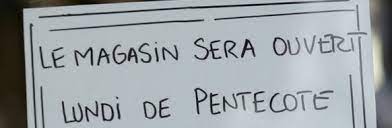 LE MAGASIN SERA OUVERT
LUNDI DE PENTECOTE